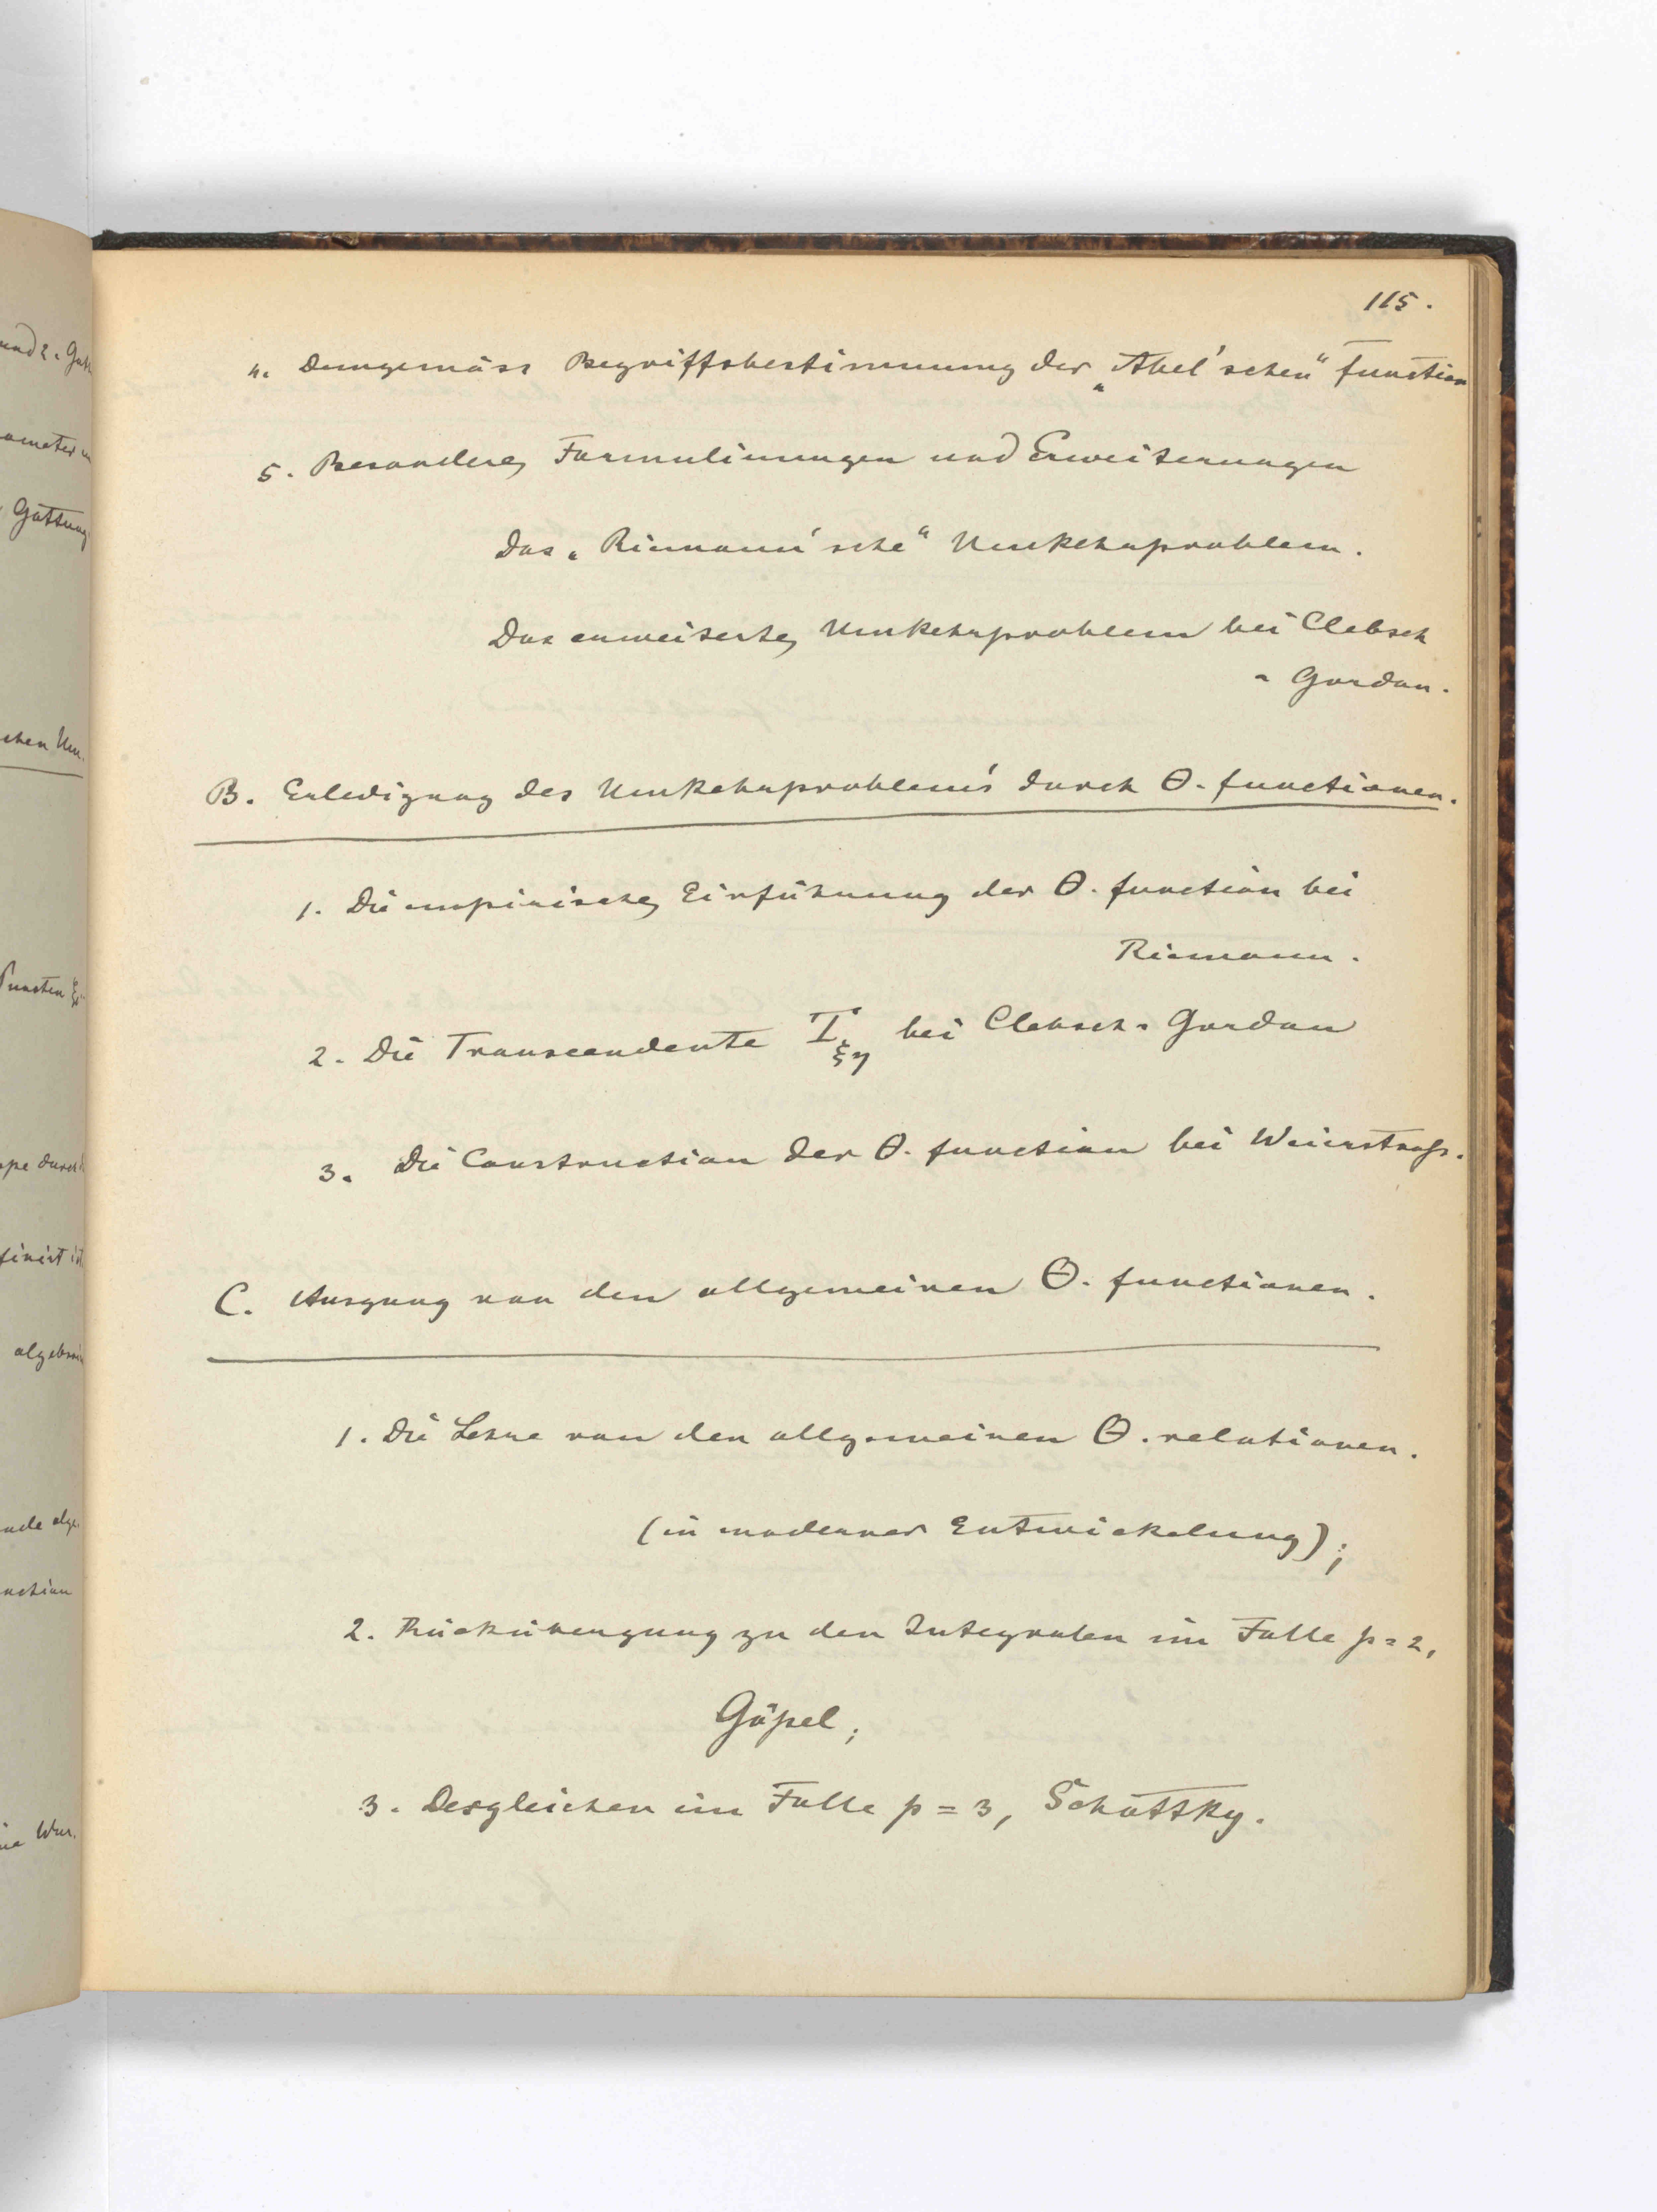 115.
4. Demgemäss Begriffsbestimmung der „Abel'schen“ function
5. Besondere Formulirungen und Erweiterungen
Das „Riemann'sche“ Umkehrproblem.
Das erweiterte Umkehrproblem bei Clebsch
- Gordan.
B. Erledigung des Umkehrproblem's durch Θ-functionen.
1. Die empirische Einführung der Θ-function bei
Riemann.
2. Die Transcendente T_ξη bei Clebsch-Gordan
3. Die Construction der Θ-function bei Weierstraß.
C. Ausgang von den allgemeinen Θ-functionen.
1. Die Lehre von den allgemeinen Θ-relationen.
(in moderner Entwickelung);
2. Rücküber­gang zu den Integralen im Falle p=2,
Göpel;
3. Desgleichen im Falle p=3, Schottky.
und 2. Gatt
ometer
Gattung
schen Um
Puncten ξ
ype durch
finirt ist
algebrai
nde alge
nction